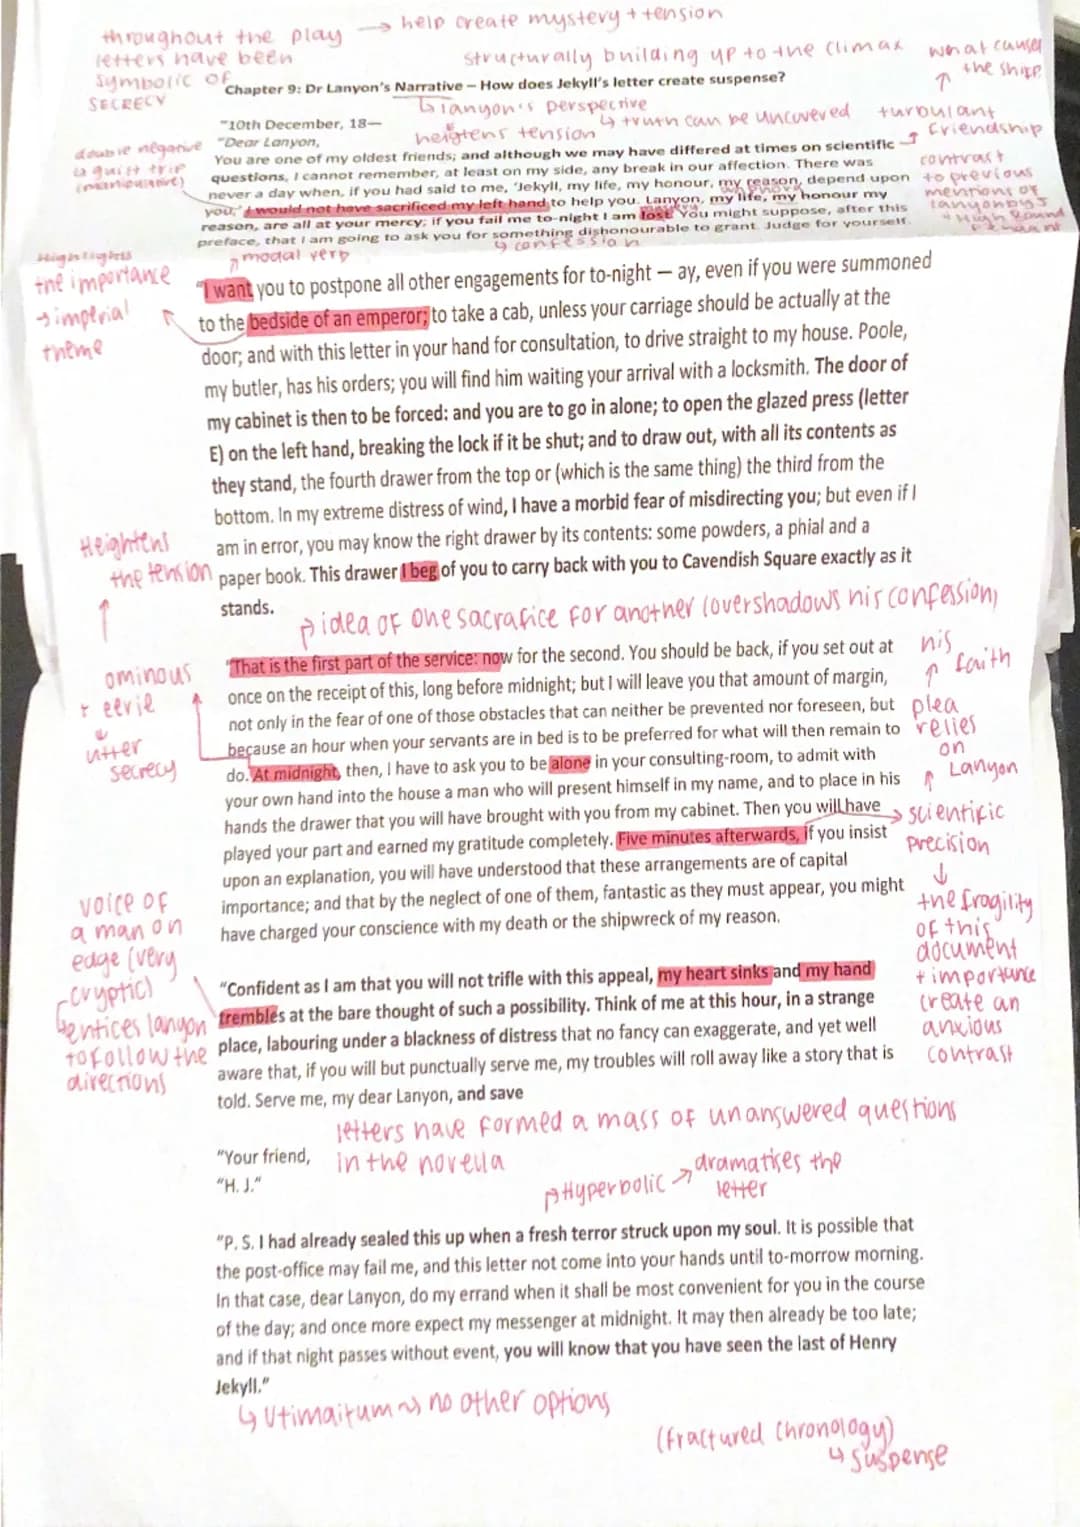 throughout the play → help create mystery + tension
letters have been
symbolic of
SECRECY
structurally building up to the climax
what caused
the shift
Chapter 9: Dr Lanyon's Narrative – How does Jekyll's letter create suspense?
↳ lanyon's perspective
↳ truth can be uncovered
heigtens tension
turbulant
friendship
"10th December, 18—
"Dear Lanyon,
double negative
↳ guilt trip
(manipulative)
You are one of my oldest friends; and although we may have differed at times on scientific
questions, I cannot remember, at least on my side, any break in our affection. There was
never a day when, if you had said to me, 'Jekyll, my life, my honour, my reason, depend upon
you,' I would not have sacrificed my left hand to help you. Lanyon, my life, my honour my
reason, are all at your mercy; if you fail me to-night I am lost. You might suppose, after this
preface, that I am going to ask you for something dishonourable to grant. Judge for yourself.
contrast
to previous
mentions of
↳ confession
modal verb
Highlights
the importance
→ imperial
theme
"I want you to postpone all other engagements for to-night — ay, even if you were summoned
to the bedside of an emperor; to take a cab, unless your carriage should be actually at the
door; and with this letter in your hand for consultation, to drive straight to my house. Poole,
my butler, has his orders; you will find him waiting your arrival with a locksmith. The door of
my cabinet is then to be forced: and you are to go in alone; to open the glazed press (letter
E) on the left hand, breaking the lock if it be shut; and to draw out, with all its contents as
they stand, the fourth drawer from the top or (which is the same thing) the third from the
bottom. In my extreme distress of wind, I have a morbid fear of misdirecting you; but even if I
am in error, you may know the right drawer by its contents: some powders, a phial and a
paper book. This drawer I beg of you to carry back with you to Cavendish Square exactly as it
stands.
Heightens
the tension
idea of one sacrafice for another (overshadows his confession)
ominous
+ eerie
utter
secrecy
"That is the first part of the service: now for the second. You should be back, if you set out at
once on the receipt of this, long before midnight; but I will leave you that amount of margin,
not only in the fear of one of those obstacles that can neither be prevented nor foreseen, but
because an hour when your servants are in bed is to be preferred for what will then remain to
do. At midnight, then, I have to ask you to be alone in your consulting-room, to admit with
your own hand into the house a man who will present himself in my name, and to place in his
hands the drawer that you will have brought with you from my cabinet. Then you will have
played your part and earned my gratitude completely. Five minutes afterwards, if you insist
upon an explanation, you will have understood that these arrangements are of capital
importance; and that by the neglect of one of them, fantastic as they must appear, you might
have charged your conscience with my death or the shipwreck of my reason.
his
faith
plea
relies
on
Lanyon
scientific
precision
↓
the fragility
of this
document
+ importance
create an
anxious
contrast
voice of
a man on
edge (very
cryptic)
↳ entices lanyon
to follow the
directions
"Confident as I am that you will not trifle with this appeal, my heart sinks and my hand
trembles at the bare thought of such a possibility. Think of me at this hour, in a strange
place, labouring under a blackness of distress that no fancy can exaggerate, and yet well
aware that, if you will but punctually serve me, my troubles will roll away like a story that is
told. Serve me, my dear Lanyon, and save
letters have formed a mass of unanswered questions
in the novella
"Your friend,
"H. J."
Hyperbolic → dramatises the
letter
"P. S. I had already sealed this up when a fresh terror struck upon my soul. It is possible that
the post-office may fail me, and this letter not come into your hands until to-morrow morning.
In that case, dear Lanyon, do my errand when it shall be most convenient for you in the course
of the day; and once more expect my messenger at midnight. It may then already be too late;
and if that night passes without event, you will know that you have seen the last of Henry
Jekyll."
↳ Utimaitum ~> no other options
(fractured chronology)
↳ suspense